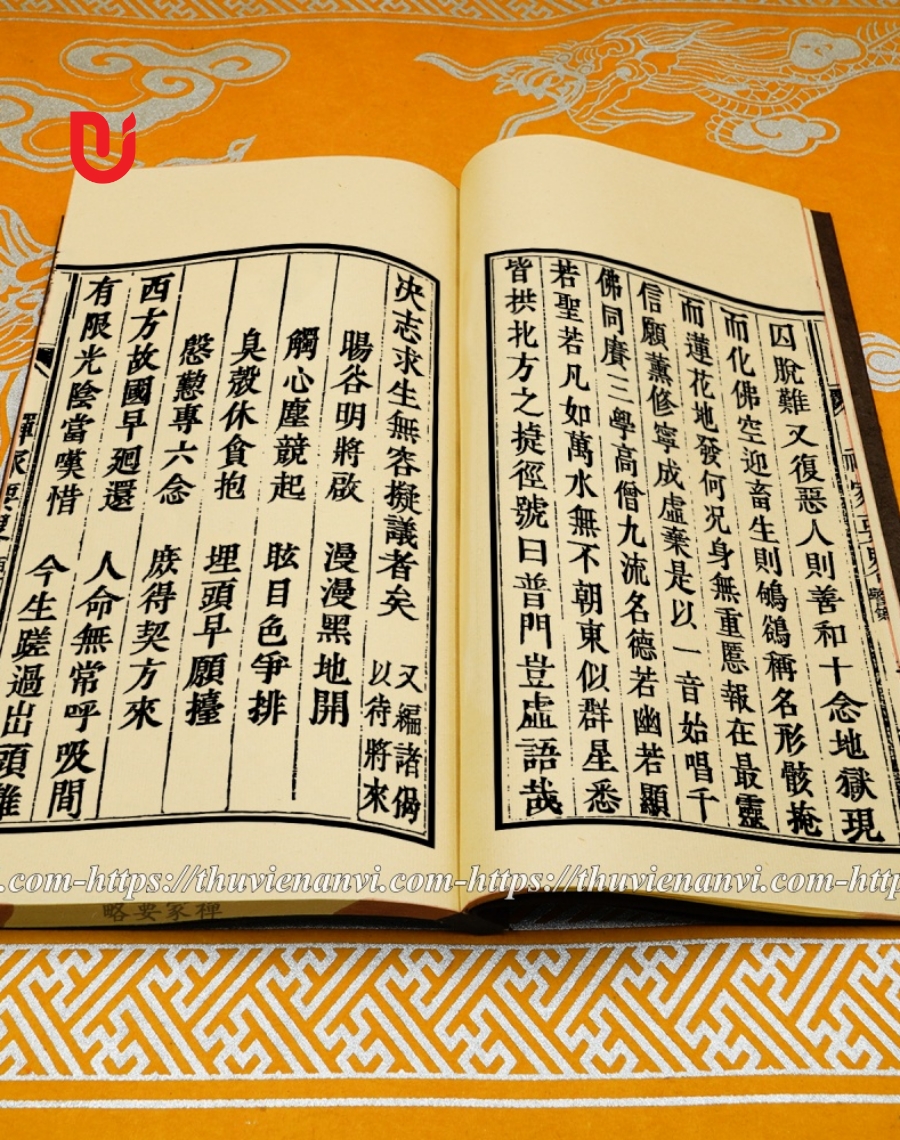 囚脫難又復惡人則善和十念地獄現
而化佛空迎畜生則鴝鵒稱名形骸掩
而蓮花地發何况身無重慝報在最靈
信願薰修寧成虛棄是以一音始唱千
佛同賡三學高僧九流名德若幽若顯
若聖若凡如萬水無不朝東似群星悉
皆拱北方之捷徑號曰普門豈虛語哉
决志求生無容擬議者矣 又編諸偈
以待將來
暘谷明將啟 漫漫黑地開
觸心塵競起 眩目色爭排
臭殼休貪抱 埋頭早願擡
慇懃專六念 庶得契方來
西方故國早廻還 人命無常呼吸間
有限光陰當嘆惜 今生蹉過出頭難
.com-https://thuvienanvi.com-https://thuvienanvi.com-http
略要冢禪